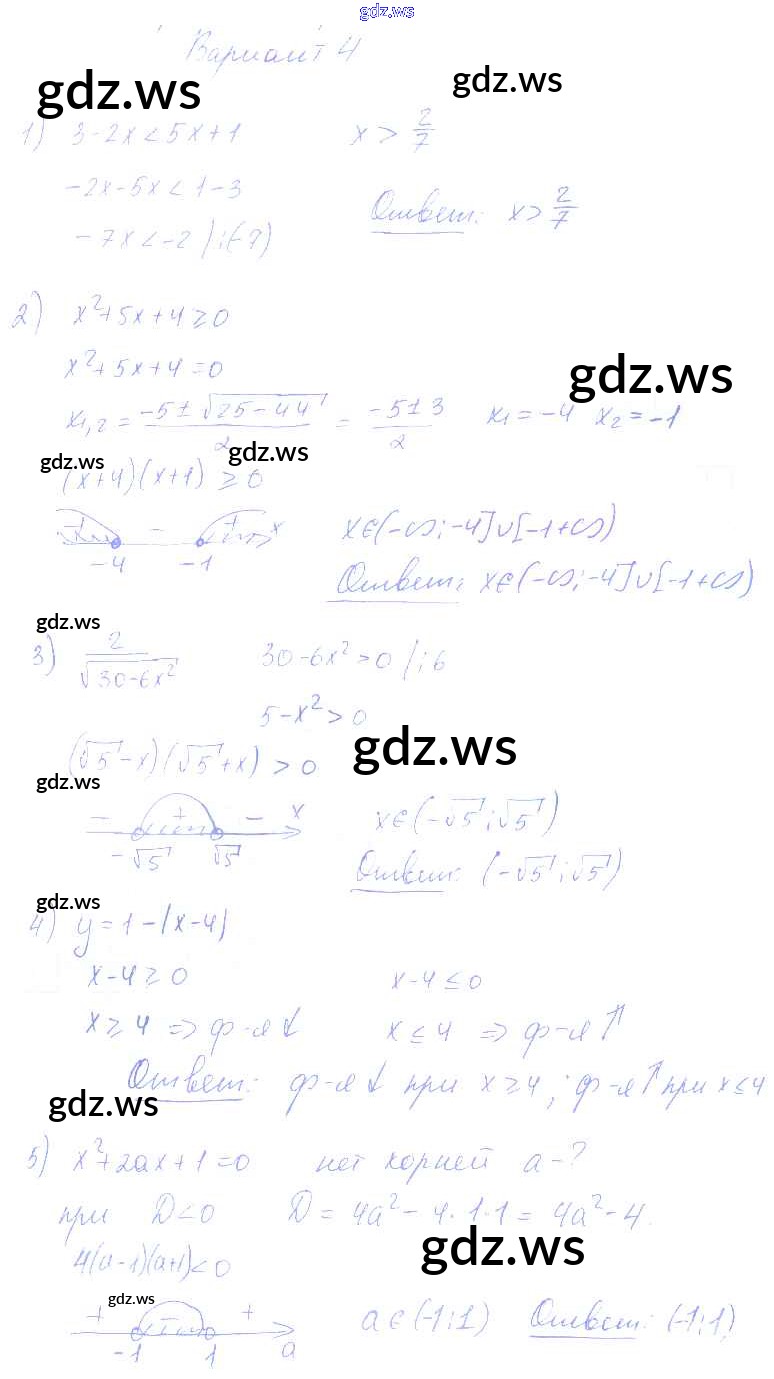 gdz.ws
Вариант 4
gdz.ws
gdz.ws
1) 3-2x<5x+1 x > 2/7
-2x-5x<1-3
Ответ: x > 2/7
-7x<-2 |:(-7)
2) x²+5x+4≥0
x²+5x+4=0
gdz.ws
x₁,₂ = (-5±√(25-4·4))/2 = (-5±3)/2 x₁=-4 x₂=-1
gdz.ws
gdz.ws
(x+4)(x+1)≥0
+ - + x
-4 -1
x∈(-∞;-4]∪[-1+∞)
Ответ: x∈(-∞;-4]∪[-1+∞)
gdz.ws
3) 2/√(30-6x²) 30-6x²>0 |:6
5-x²>0
gdz.ws
(√5-x)(√5+x)>0
gdz.ws
- + - x
-√5 √5
x∈(-√5;√5)
Ответ: (-√5;√5)
gdz.ws
4) y=1-|x-4|
x-4≥0 x-4≤0
x≥4 => ф-я↓ x≤4 => ф-я↑
Ответ: ф-я↓ при x≥4; ф-я↑ при x≤4
gdz.ws
5) x²+2ax+1=0 нет корней a-?
при D<0 D=4a²-4·1·1=4a²-4.
gdz.ws
4(a-1)(a+1)<0
gdz.ws
+ - +
-1 1 a
a∈(-1;1) Ответ: (-1;1)